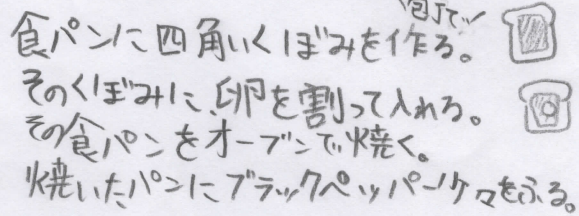 包丁で
食パンに四角いくぼみを作る。
そのくぼみに、卵を割って入れる。
その食パンをオーブンで焼く。
焼いたパンにブラックペッパー少々をふる。